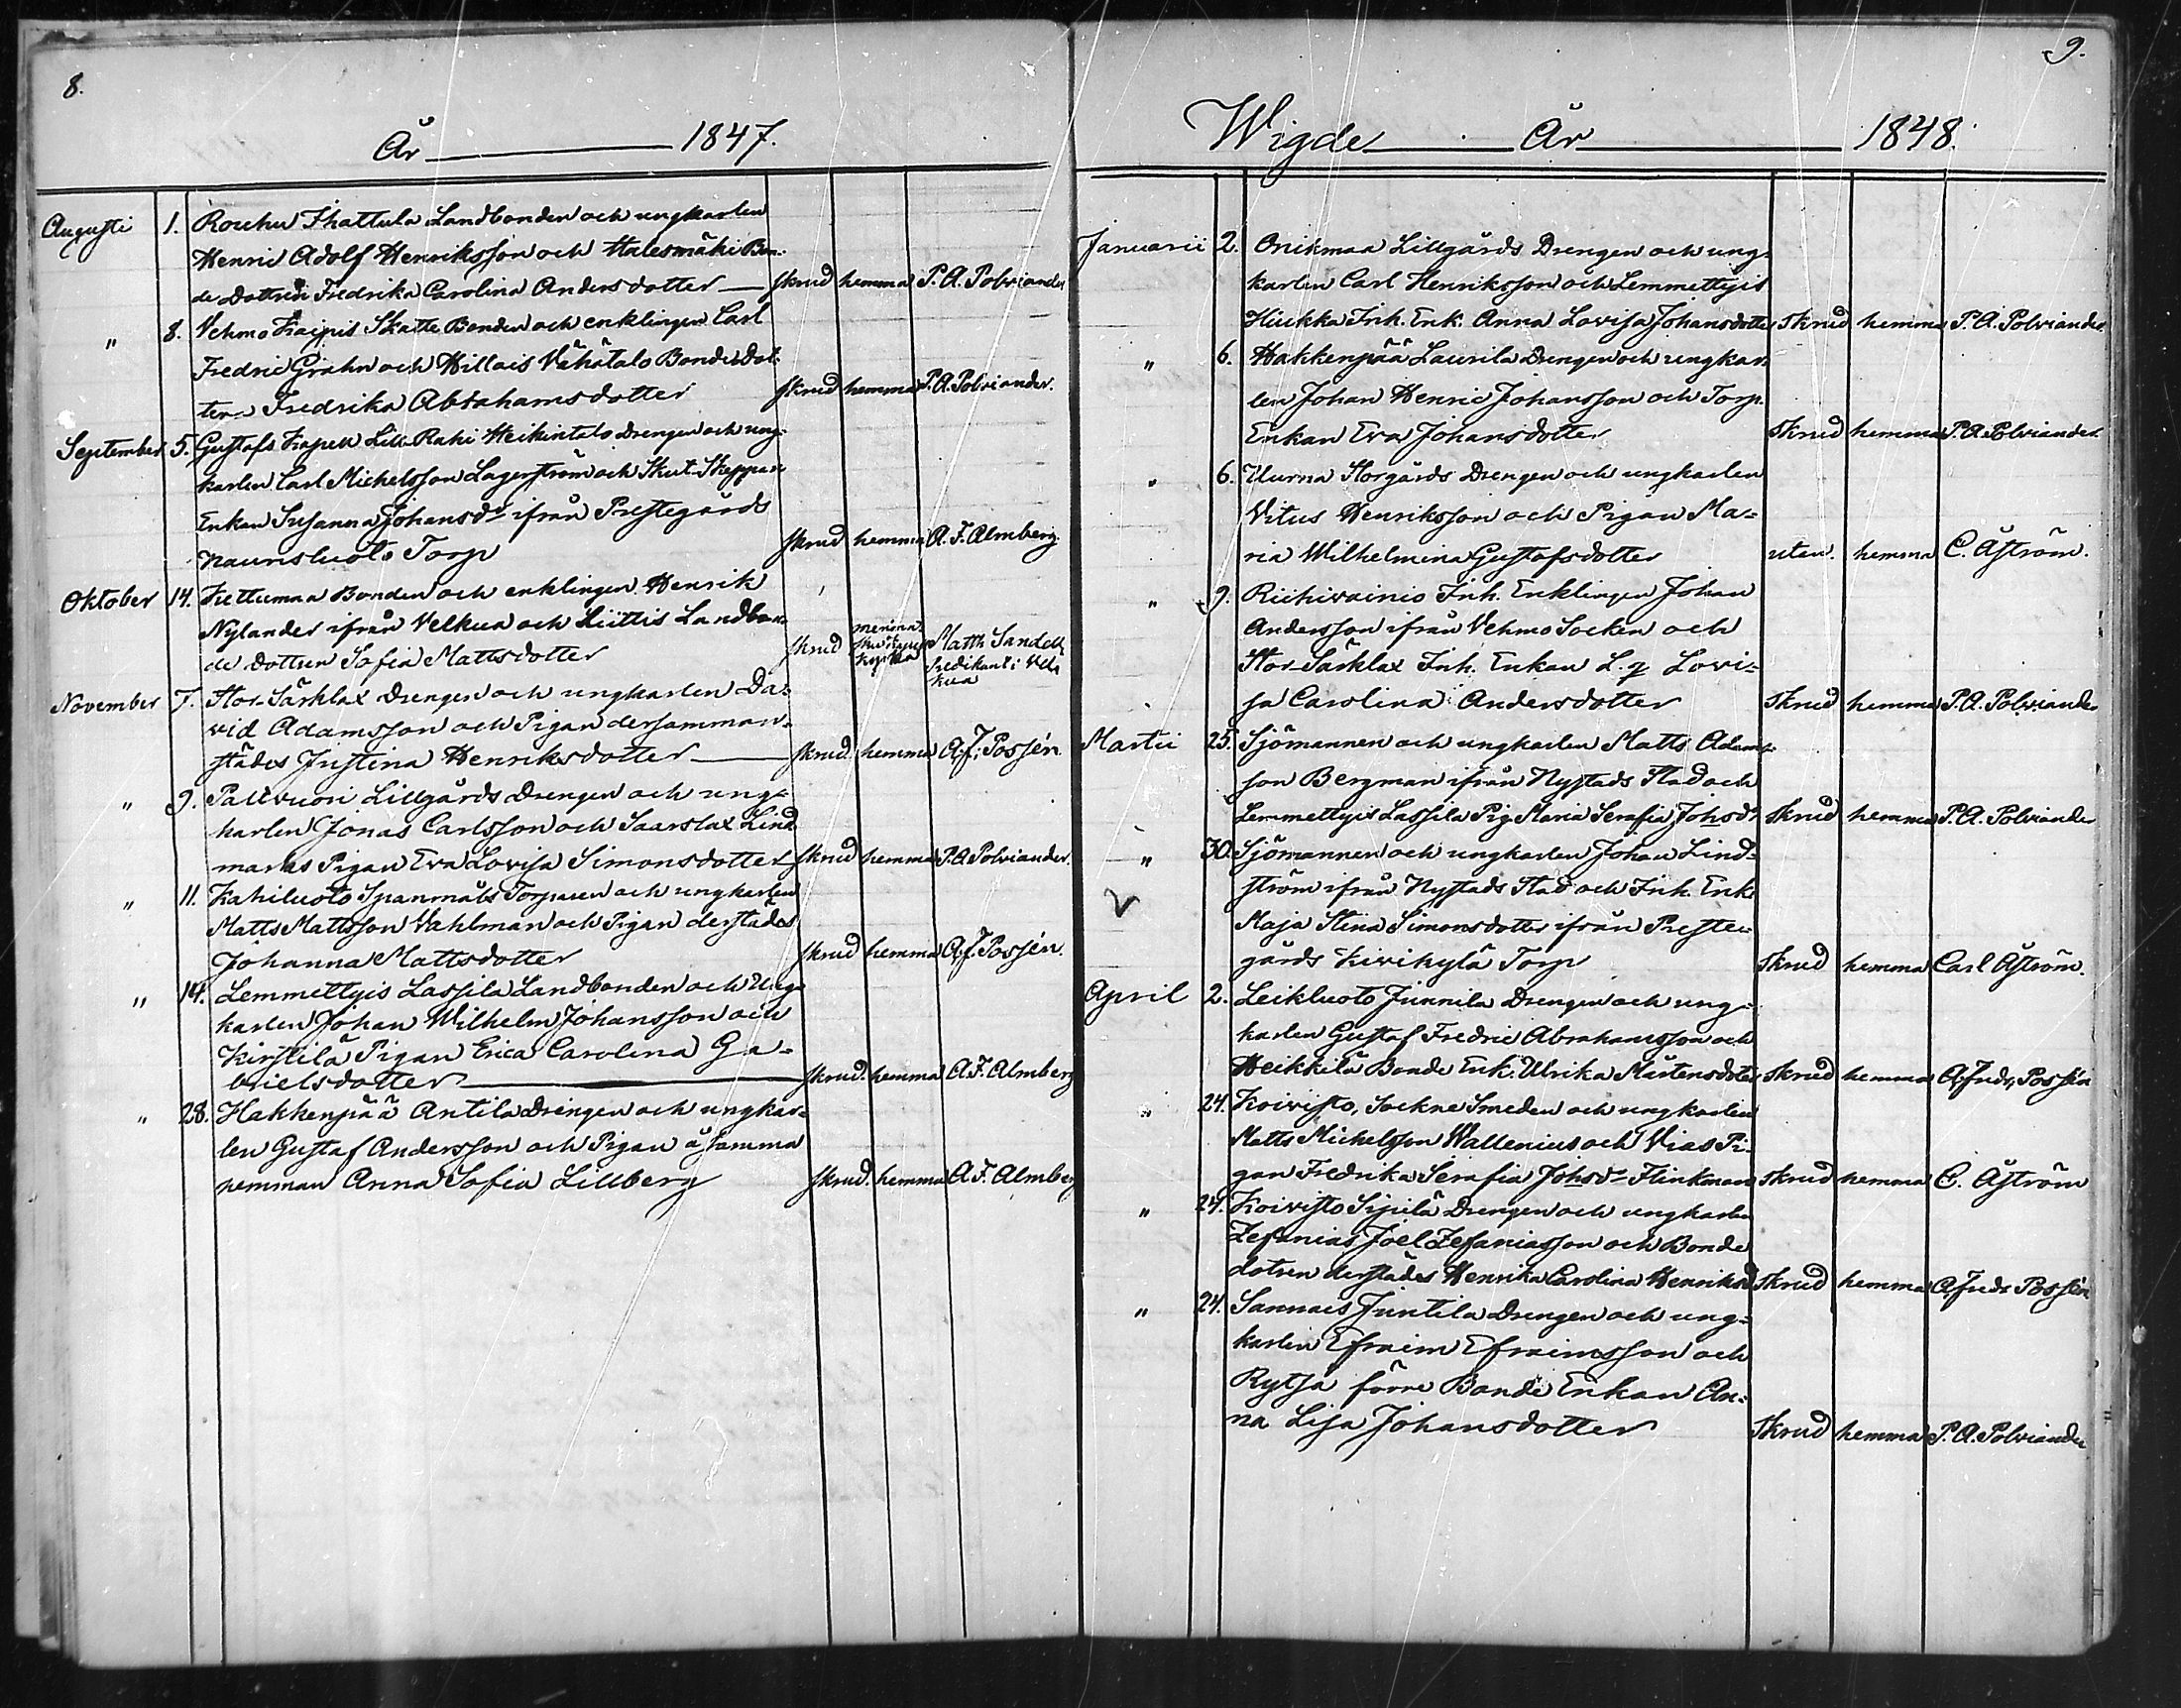 8.
År 1847.
Augusti 1. Rouhu Ihattula Landbonden och ungkarlen
Henric Adolf Henriksson och Halesmäki Bon-
de Dottren Fredrika Carolina Andersdotter skrud hemma P. A. Polviander
" 8. Vehmo Skatte Bonden och enklingen Carl
Fredric Grahn och Hillais Vähätalo Bonde Dot-
tern Fredrika Abrahamsdotter skrud hemma P. A. Polviander.
September 5. Gustafs Lill Rahi Heikintalo Drengen och ung-
karlen Carl Michelsson Lagerström och Skut-Skeppare
Enkan Susanna Johansdr ifrån Prestegårds
Torp skrud hemma A. F. Almberg.
Oktober 14. Bonden och enklingen Henrik
Nylander ifrån Velkua och Liettis Landbon-
de dottren Sofia Mattsdotter skrud Matth Sandell
Predikant i Vel-
kua
November 7. Stor-Särklax Drengen och ungkarlen Da-
vid Adamsson och Pigan dersamman-
städes Justina Henriksdotter skrud. hemma A. f. Possén
" 9. Palivuori Lillgårds Drengen och ung-
karlen Jonas Carlsson och Saarslax Lind
marks Pigan Eva Lovisa Simonsdotter skrud hemma P. A Polviander.
" 11. Kahiluoto Spanmåls Torparen och ungkarlen
Matts Mattsson Vahlman och Pigan derstädes
Johanna Mattsdotter skrud hemma A. f. Possén.
" 14. Lemmettyis Lassila Landbonden och Ung-
karlen Johan Wilhelm Johansson och
Kirstilä Pigan Erica Carolina Ga-
brielsdotter skrud. hemma A. F. Almberg
" 28. Hakkenpää Antila Drengen och ungkar-
len Gustaf Andersson och Pigan å samma
hemman Anna Sofia Lillberg skrud. hemma A. F. Almberg
9.
Wigde År 1848.
Januarii 2. Onikmaa Lillgårds Drengen och ung-
karlen Carl Henriksson och Lemmettyis
Hiukka Inh. Enk. Anna Lovisa Johansdotter Skrud hemma P. A. Polviander.
" 6. Hakkenpää Laurila Drengen och ungkar-
len Johan Henric Johansson och Torp.
Enkan Eva Johansdotter Skrud hemma P. A. Polviander.
" 6. Uurna Storgårds Drengen och ungkarlen
Vitus Henriksson och Pigan Ma-
ria Wilhelmina Gustafsdotter utan. hemma C. Åström.
" 9. Riihivainio Inh. Enklingen Johan
Andersson ifrån Vehmo Socken och
Stor-Särklax Inh. Enkan L. q Lovi-
sa Carolina Andersdotter Skrud hemma P. A. Polviander
Martii 25. Sjömannen och ungkarlen Matts Adams-
son Bergman ifrån Nystads Stad och
Lemmettyis Lassila Pig. Maria Serafia Johsdr Skrud hemma P. A. Polviander
" 30. Sjömannen och ungkarlen Johan Lind-
ström ifrån Nystads Stad och Inh. Enk.
V Maja Stina Simonsdotter ifrån Preste-
gårds Kivikylä Torp Skrud hemma Carl Åström.
April 2. Leikluoto Junnila Drengen och ung-
karlen Gustaf Fredric Abrahamsson och
Heikkilä Bonde Enk. Ulrika Mårtensdotter Skrud hemma A. fredr. Possén
" 24. Koivisto, Sockne Smeden och ungkarlen
Matts Michelsson Wallenius och Vias Pi-
gan Fredrika Serafia Johsdr Flinkman Skrud hemma C. Åström
" 24. Koivisto Sipilä Drengen och ungkarlen
Zefanias Joel Zefaniasson och Bonde
dotren derstädes Henrika Carolina Henriksd Skrud hemma A. fredr Possén
" 24. Sannais Juntila Drengen och ung-
karlen Efraim Efraimsson och
Rytsä förre Bonde Enkan An-
na Lisa Johansdotter Skrud hemma P. A. Polviander